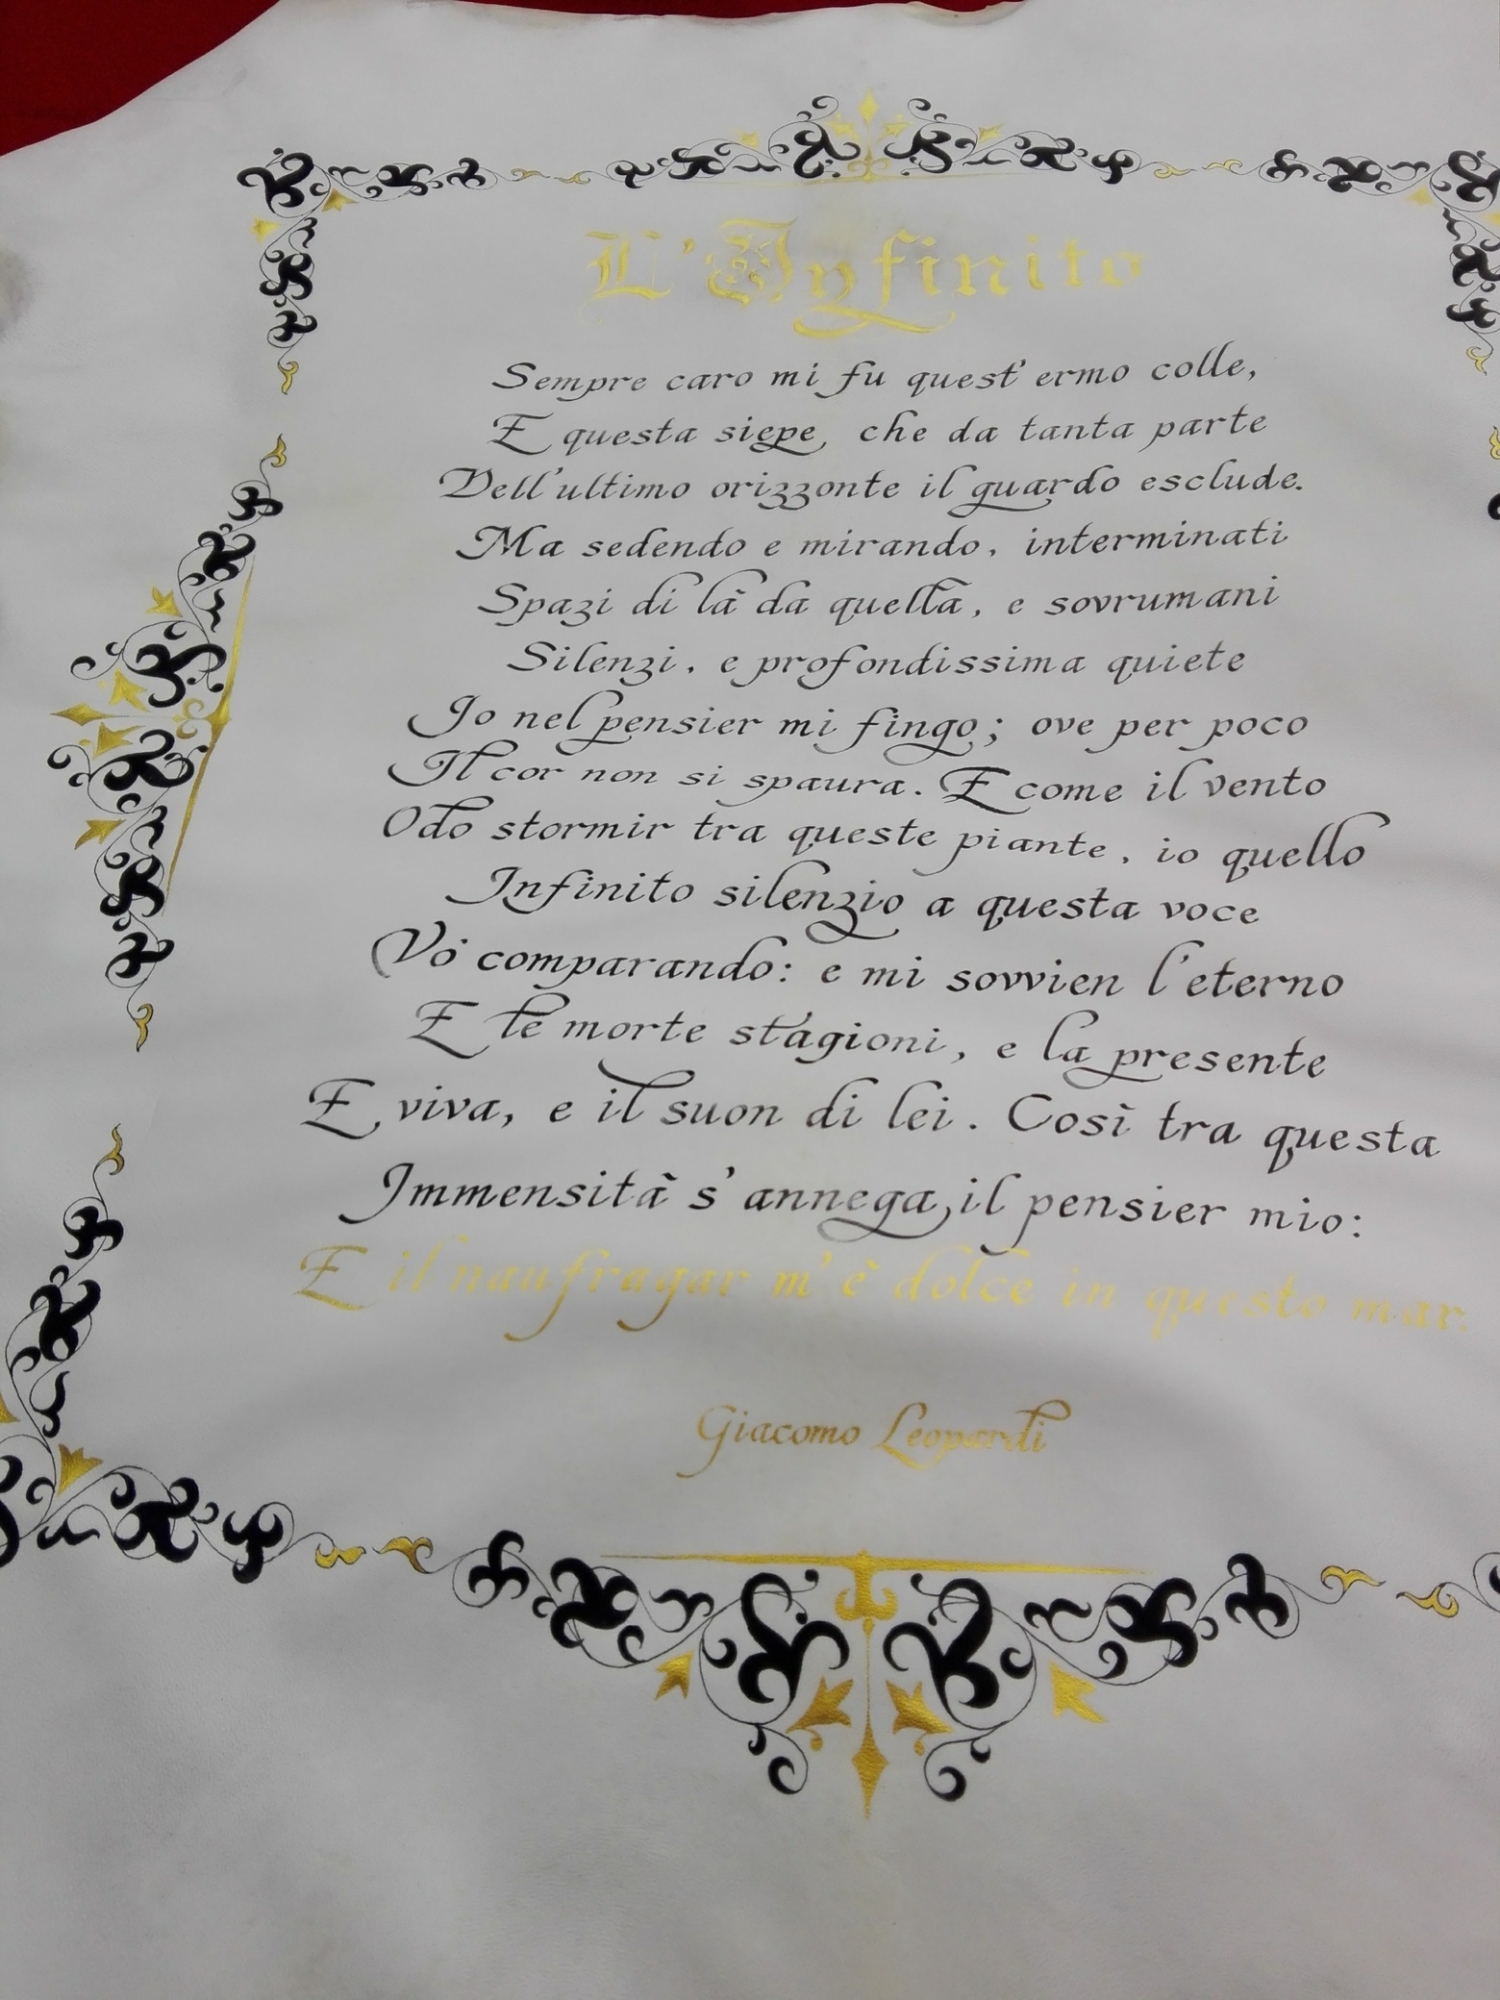 L'Infinito
Sempre caro mi fu quest' ermo colle,
E questa siepe, che da tanta parte
Dell'ultimo orizzonte il guardo esclude.
Ma sedendo e mirando, interminati
Spazi di là da quella, e sovrumani
Silenzi, e profondissima quiete
Io nel pensier mi fingo; ove per poco
Il cor non si spaura. E come il vento
Odo stormir tra queste piante, io quello
Infinito silenzio a questa voce
Vò comparando: e mi sovvien l'eterno
E le morte stagioni, e la presente
E viva, e il suon di lei. Così tra questa
Immensità s'annega il pensier mio:
E il naufragar m'è dolce in questo mar.
Giacomo Leopardi